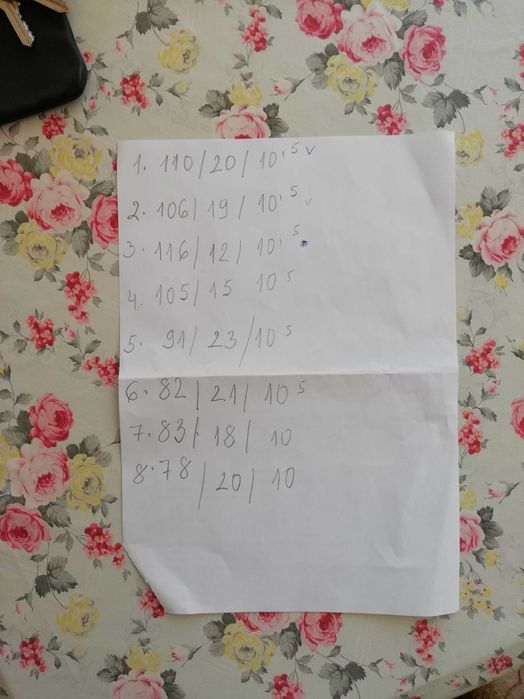 1. 110/20/10'⁵ v
2. 106/19/10'⁵ v
3. 116/12/10'⁵
4. 105/15 10⁵
5. 91/23/10⁵
6. 82/21/10⁵
7. 83/18/10
8. 78/20/10